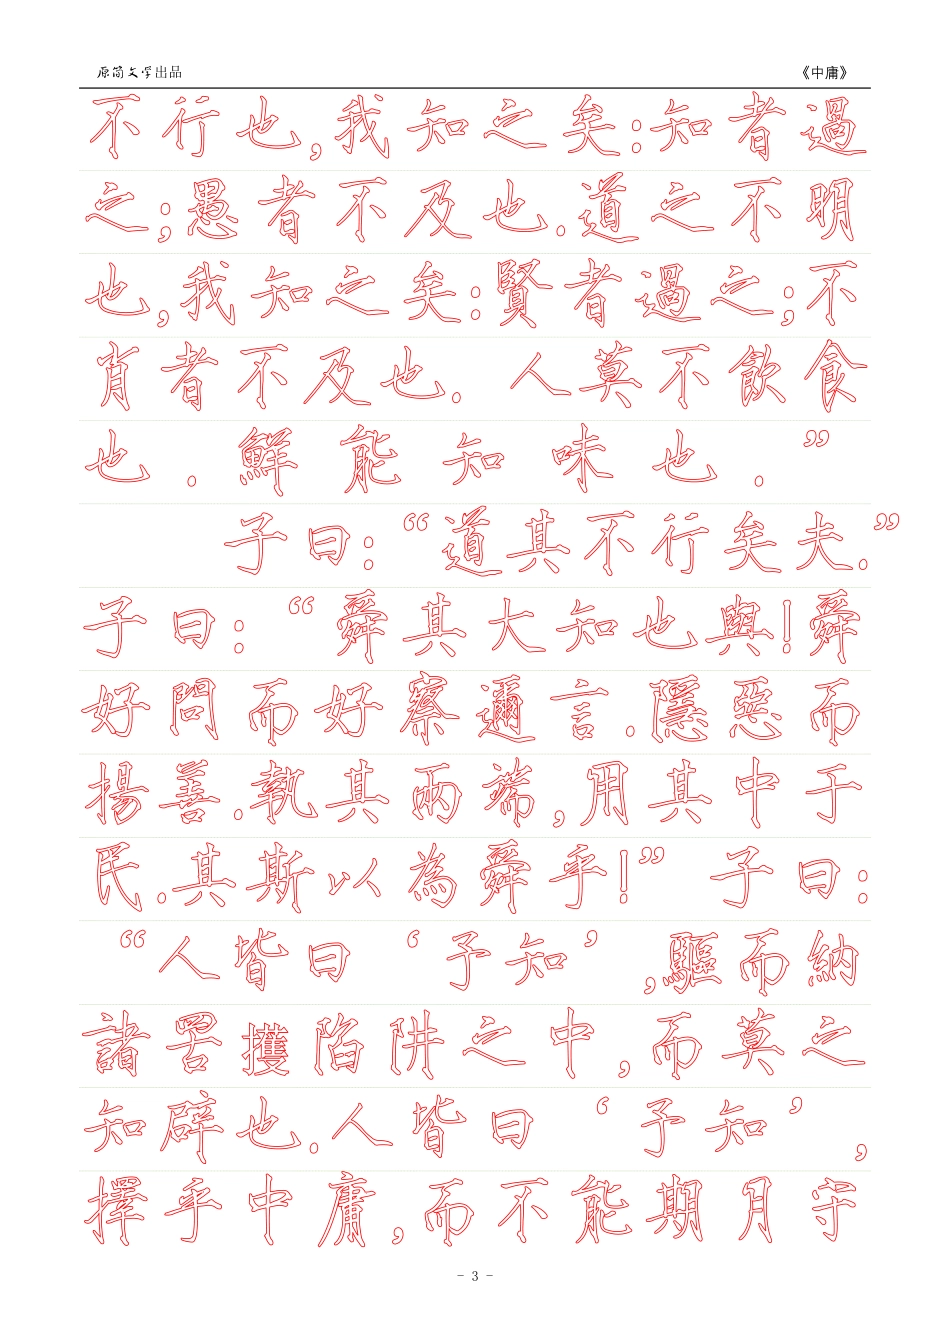 原简文学出品 《中庸》
不行也,我知之矣:知者過
之;愚者不及也.道之不明
也,我知之矣:賢者過之;不
肖者不及也.人莫不飲食
也.鮮能知味也.”
子曰:“道其不行矣夫.”
子曰:“舜其大知也與!舜
好問而好察邇言.隱惡而
揚善.執其兩端,用其中于
民.其斯以為舜乎!”子曰:
“人皆曰‘予知’,驅而納
諸罟擭陷阱之中,而莫之
知辟也.人皆曰‘予知’,
擇乎中庸,而不能期月守
- 3 -